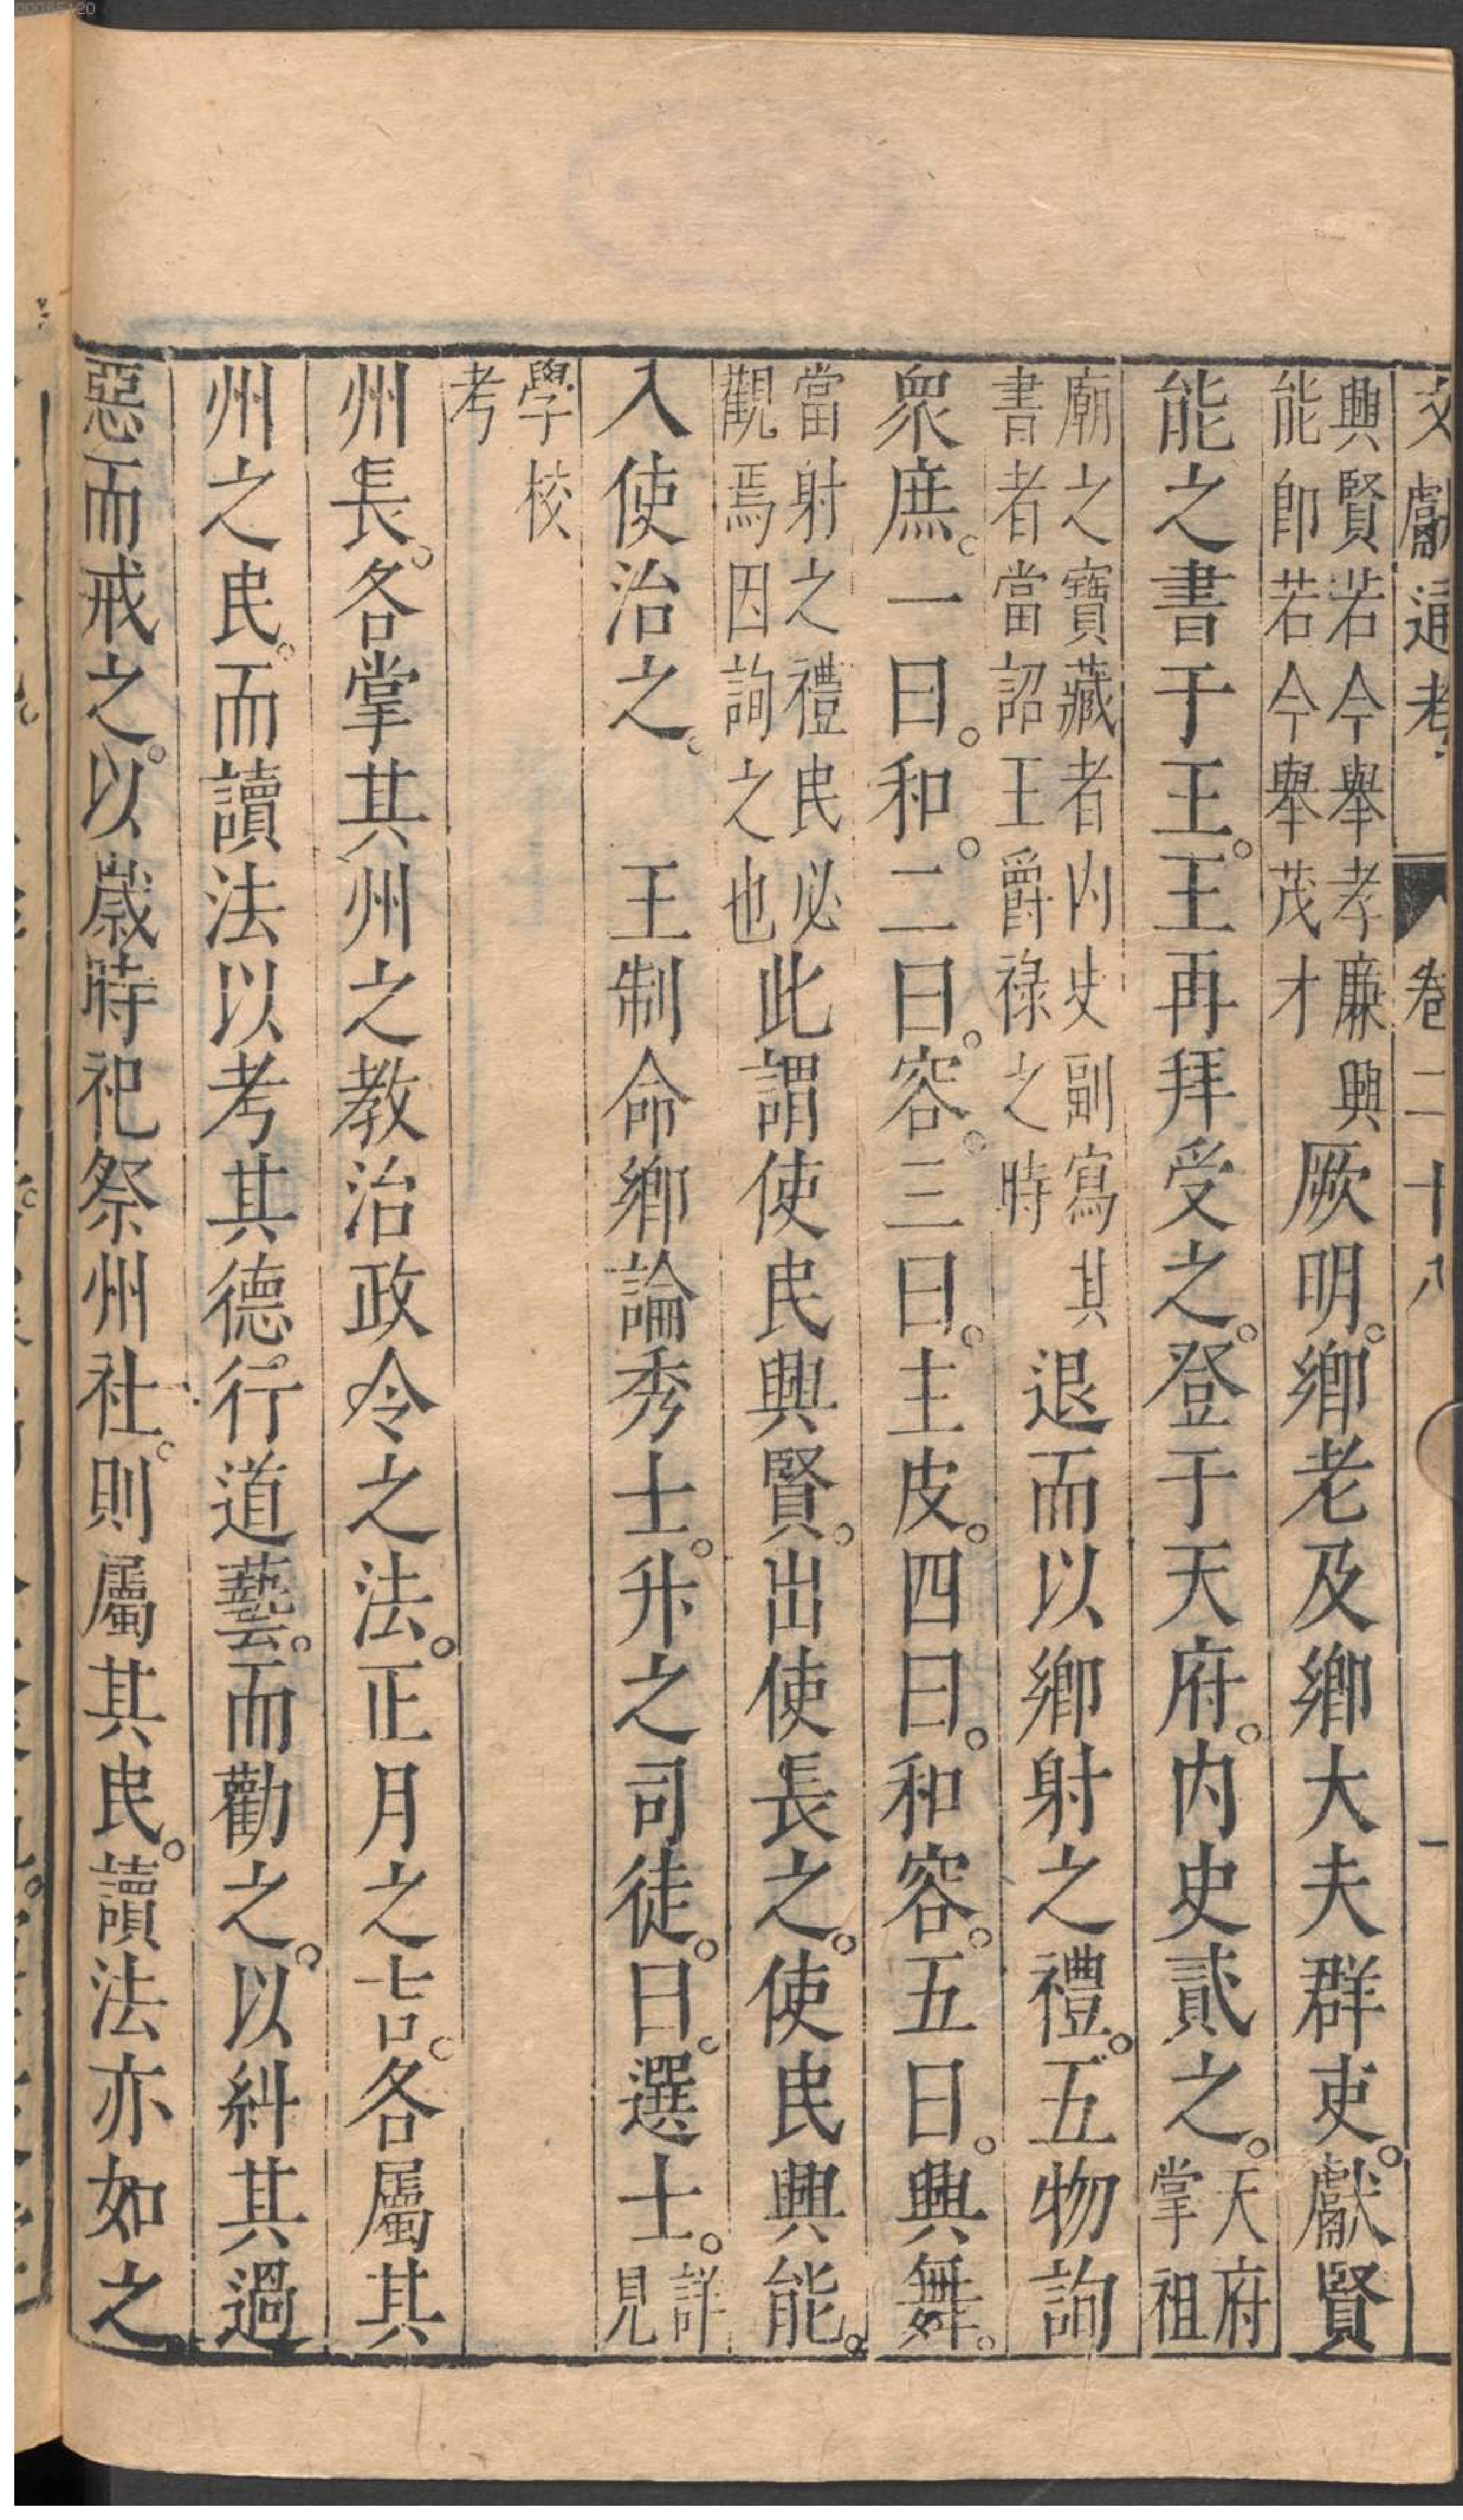 00085420
文獻通考 卷二十八 一
興賢若今舉孝廉興
能即若今舉茂才
厥明。鄉老及鄉大夫群吏。獻賢
能之書于王。王再拜受之。登于天府。內史貳之。天府
掌祖
廟之寶藏者內史副寫其
書者當詔王爵祿之時
退而以鄉射之禮。五物詢
衆庶。一曰。和。二曰。容。三曰。主皮。四曰。和容。五曰。興舞。
當射之禮民必
觀焉因詢之也
此謂使民興賢。出使長之。使民興能。
入使治之。 王制命鄉論秀士。升之司徒。曰。選士。詳
見
學校
考
州長。各掌其州之教治政令之法。正月之吉。各屬其
州之民。而讀法以考其德。行道藝。而勸之。以糾其過
惡而戒之。以歲時祀祭州社。則屬其民。讀法亦如之